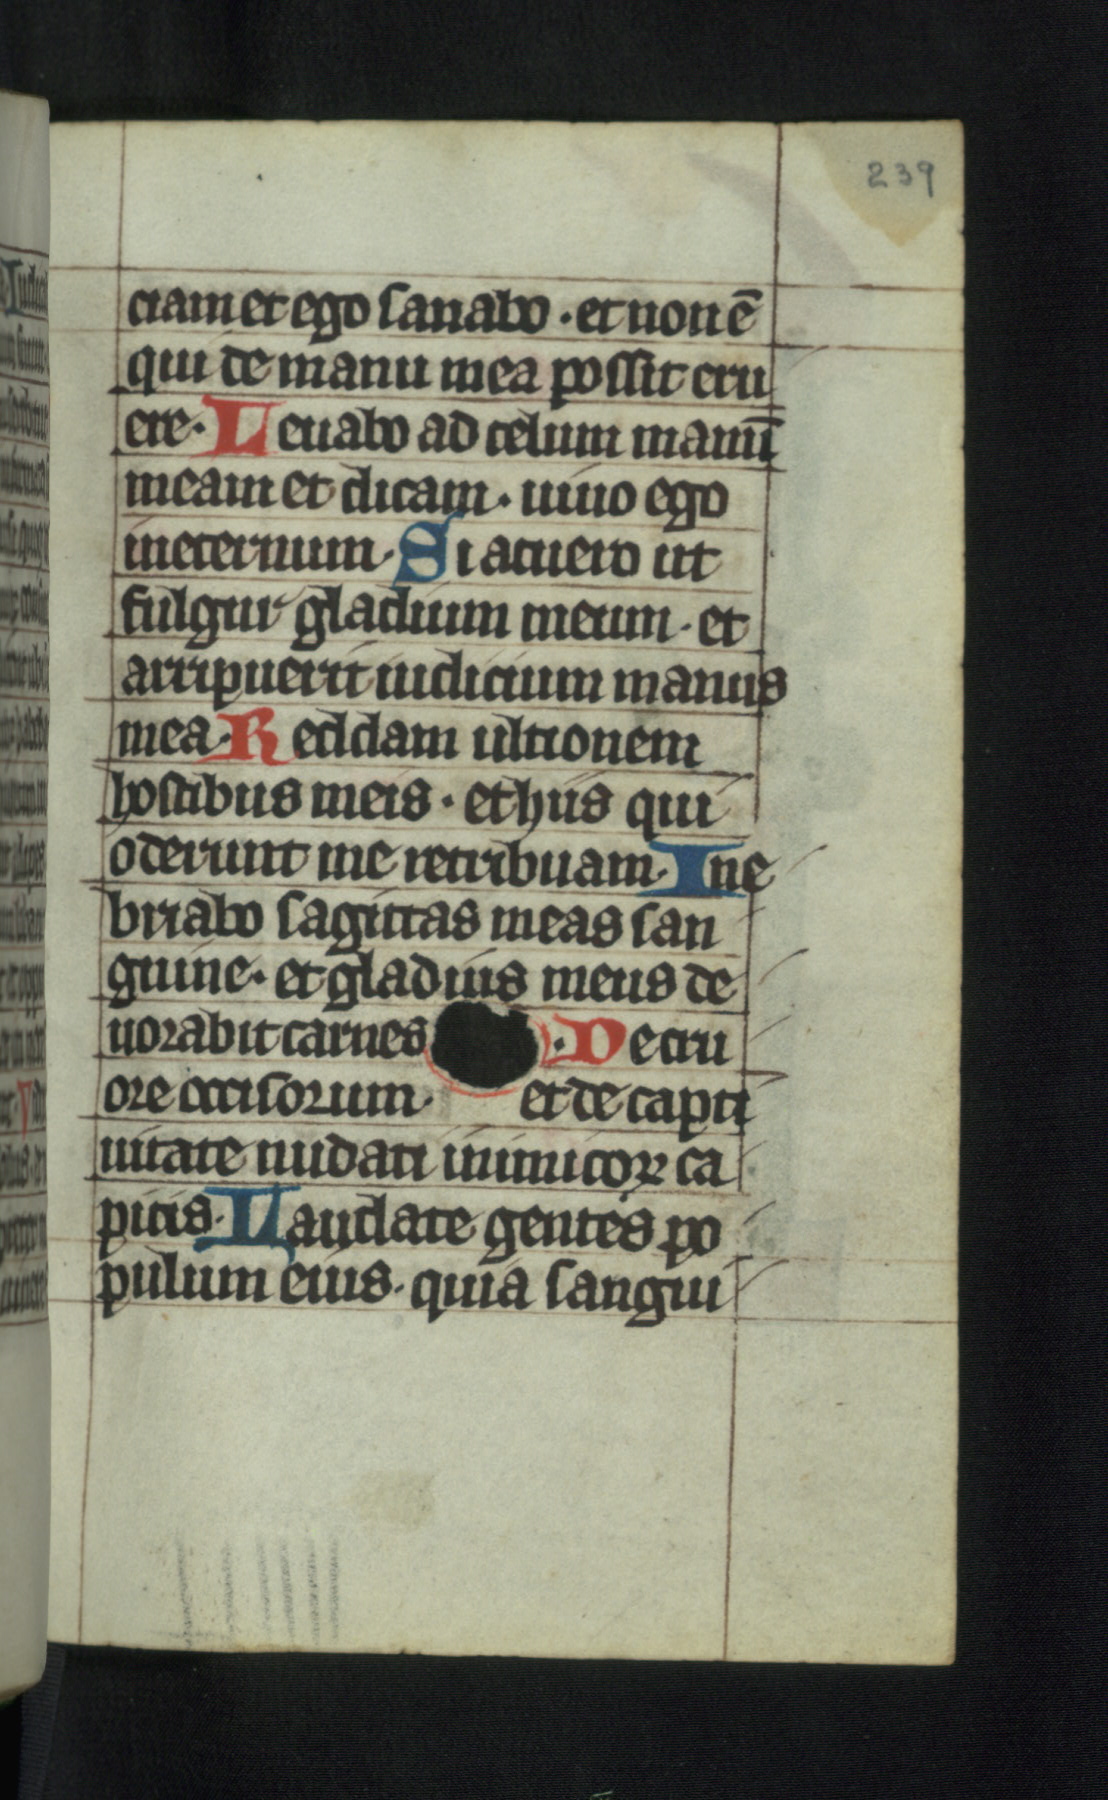 239
ciam et ego sanabo · et non ē
qui de manu mea possit eru
ere · Leuabo ad celum manū
meam et dicam · uiuo ego
ineternum · Si acuero ut
fulgur gladium meum · et
arripuerit iudicium manus
mea · Reddam ultionem
hostibus meis · et hiis qui
oderunt me retribuam · Ine
briabo sagittas meas san
guine · et gladius meus de
uorabit carnes · De cru
ore occisorum · et de capti
uitate nudati inimicoꝝ ca
pitis · Laudate gentes po
pulum eius · quia sangui